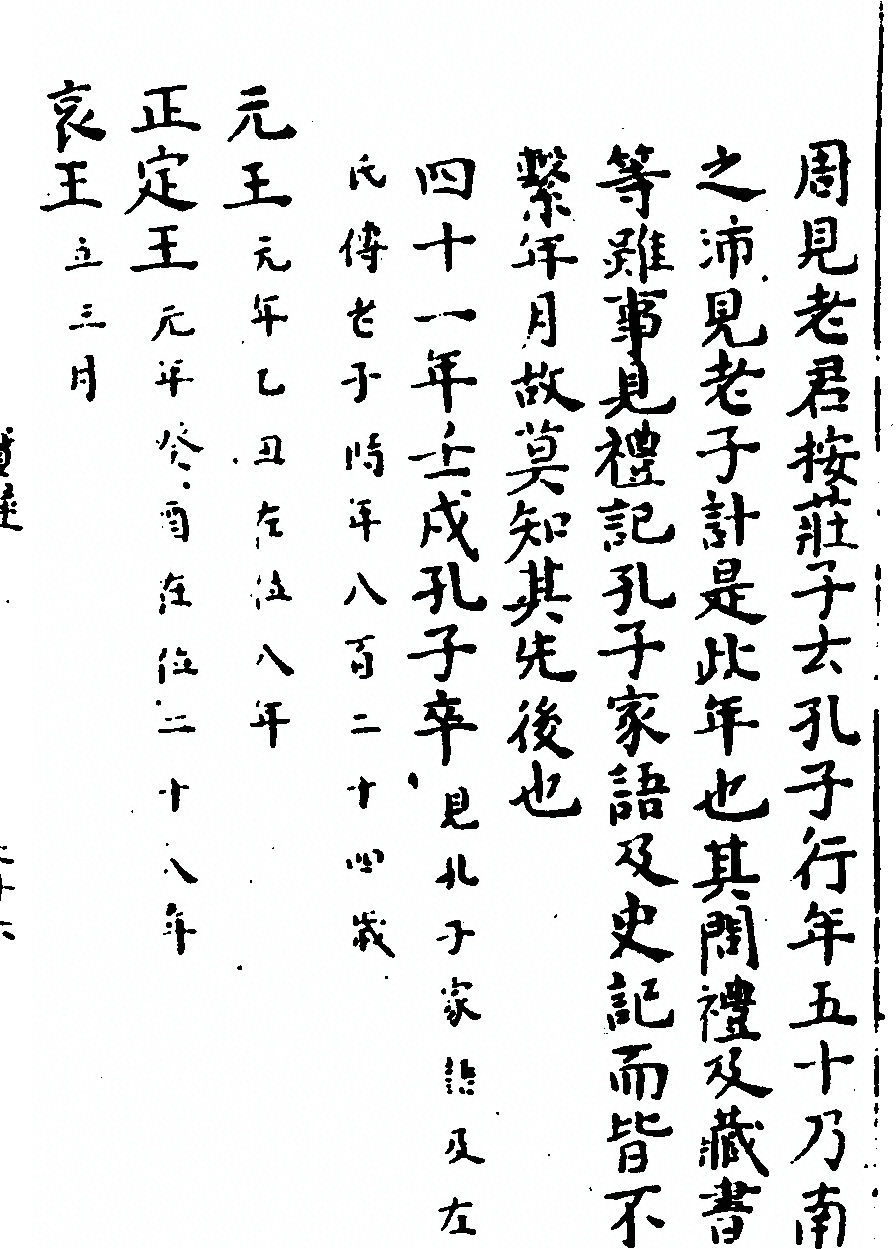 周見老君按莊子云孔子行年五十乃南
之沛見老子計是此年也其問禮及藏書
等雖事見禮記孔子家語及史記而皆不
繫年月故莫知其先後也
四十一年壬戌孔子卒見孔子家語及左
氏傳老子時年八百二十四歲
元王元年乙丑在位八年
正定王元年癸酉在位二十八年
哀王立三月